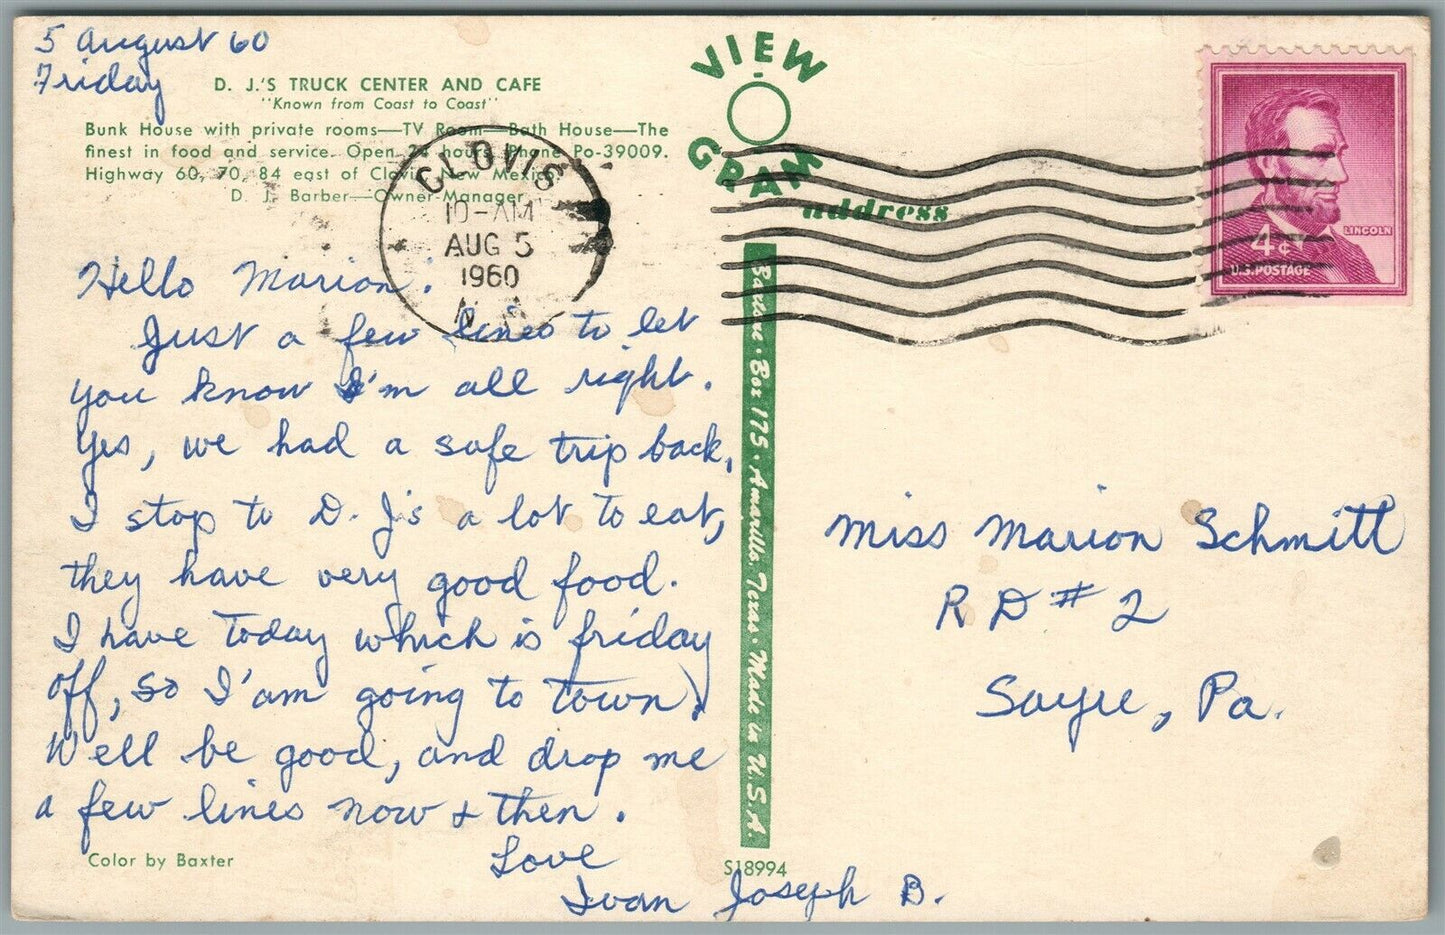 5 August 60
Friday
D. J.'S TRUCK CENTER AND CAFE
"Known from Coast to Coast"
Bunk House with private rooms—TV Room—Bath House—The
finest in food and service. Open 24 hours. Phone Po-39009.
Highway 60, 70, 84 east of Clovis, New Mexico
D. J. Barber—Owner-Manager
VIEW
GRAM
address
CLOVIS
10-AM
AUG 5
1960
N.
LINCOLN
4¢
U.S. POSTAGE
Hello Marion.
Just a few lines to let
you know I'm all right.
Yes, we had a safe trip back,
I stop to D. J's a lot to eat,
they have very good food.
I have today which is friday
off, so I'am going to town.
Well be good, and drop me
a few lines now + then.
Love
Ivan Joseph B.
Color by Baxter
S18994
Baxtone • Box 175 • Amarillo, Texas • Made in U.S.A.
Miss Marion Schmitt
RD #2
Sayre, Pa.